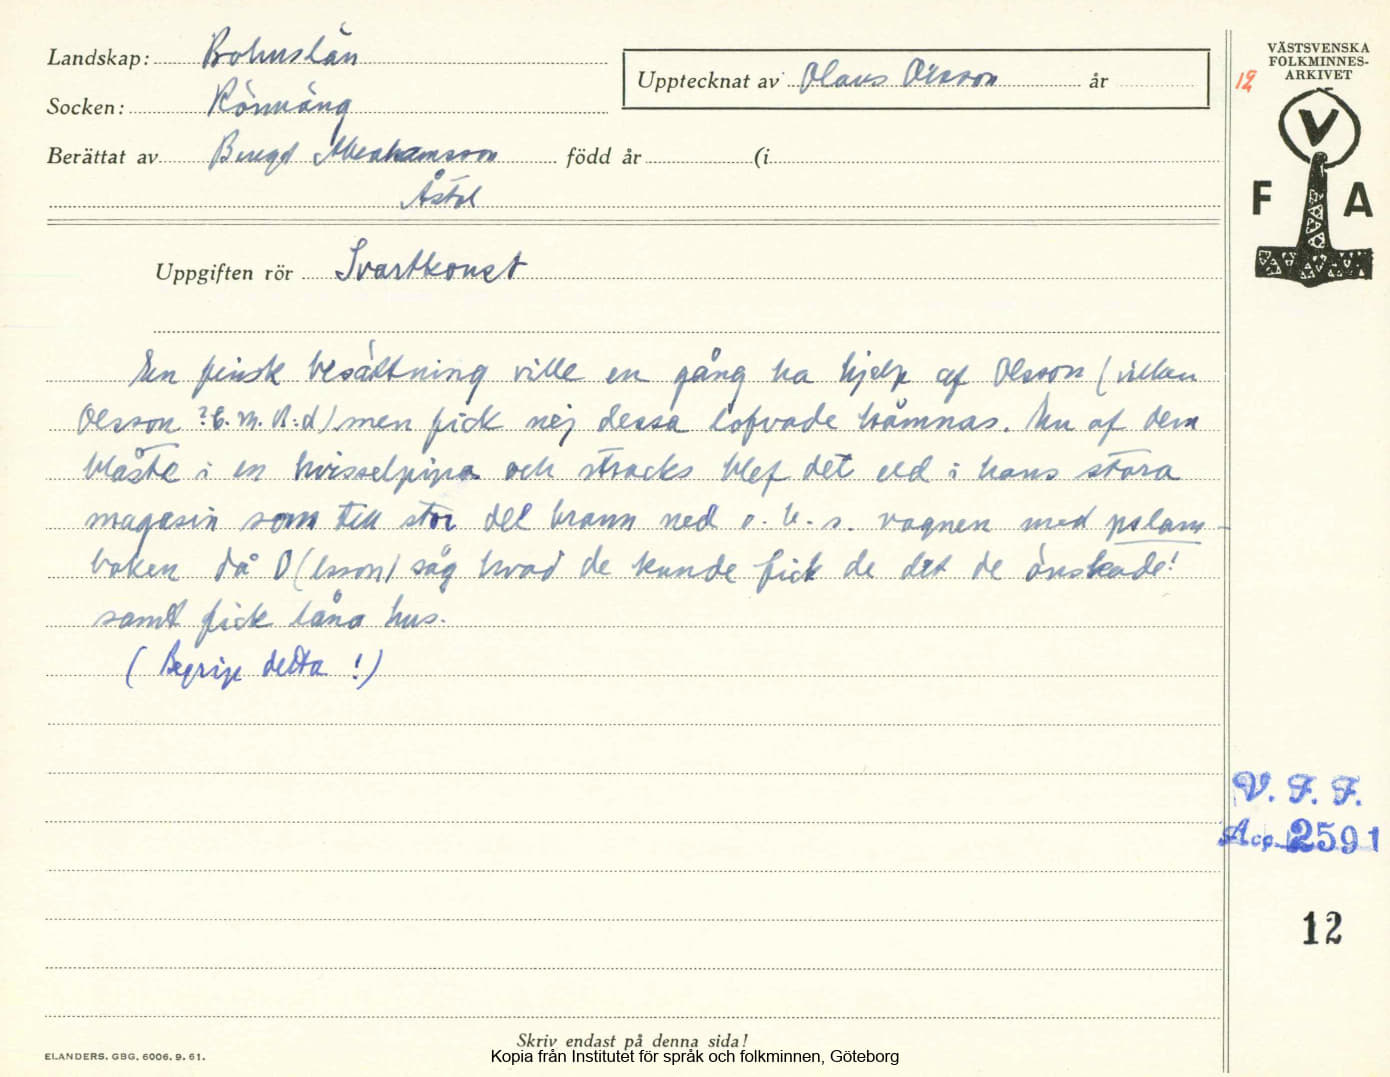 Landskap: Bohuslän
Socken: Rönnäng
Berättat av Bengd Abrahamsson född år (i
Åstol
Upptecknat av Olaus Olsson år
12
VÄSTSVENSKA
FOLKMINNES-
ARKIVET
V
F A
Uppgiften rör Svartkonst
En finsk besättning ville en gång ha hjelp af Olsson (vilken
Olsson ? C. M. R:d) men fick nej dessa lofvade hämnas. En af dem
blåste i en hvisselpipa och stracks blef det eld i hans stora
magasin som till stor del brann ned o. b. s. vagnen med pslam-
boken då O(lsson) såg hvad de kunde fick de det de önskade!
samt fick låna hus.
(Begrip detta!)
V. F. F.
Acc. 2591
12
Skriv endast på denna sida!
ELANDERS. GBG. 6006. 9. 61.
Kopia från Institutet för språk och folkminnen, Göteborg